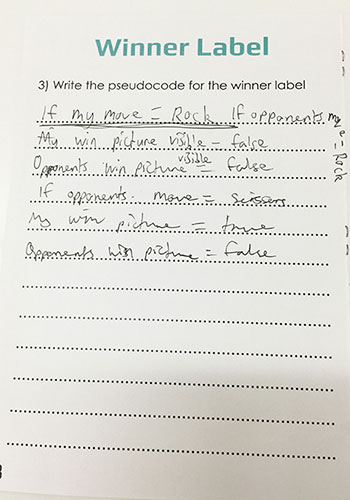 Winner Label
3) Write the pseudocode for the winner label
If my move = Rock If opponents move = Rock
My win picture visible = false
Opponents win picture visible = false
If opponents. move = scissors
My win picture = true
Opponents win picture = false